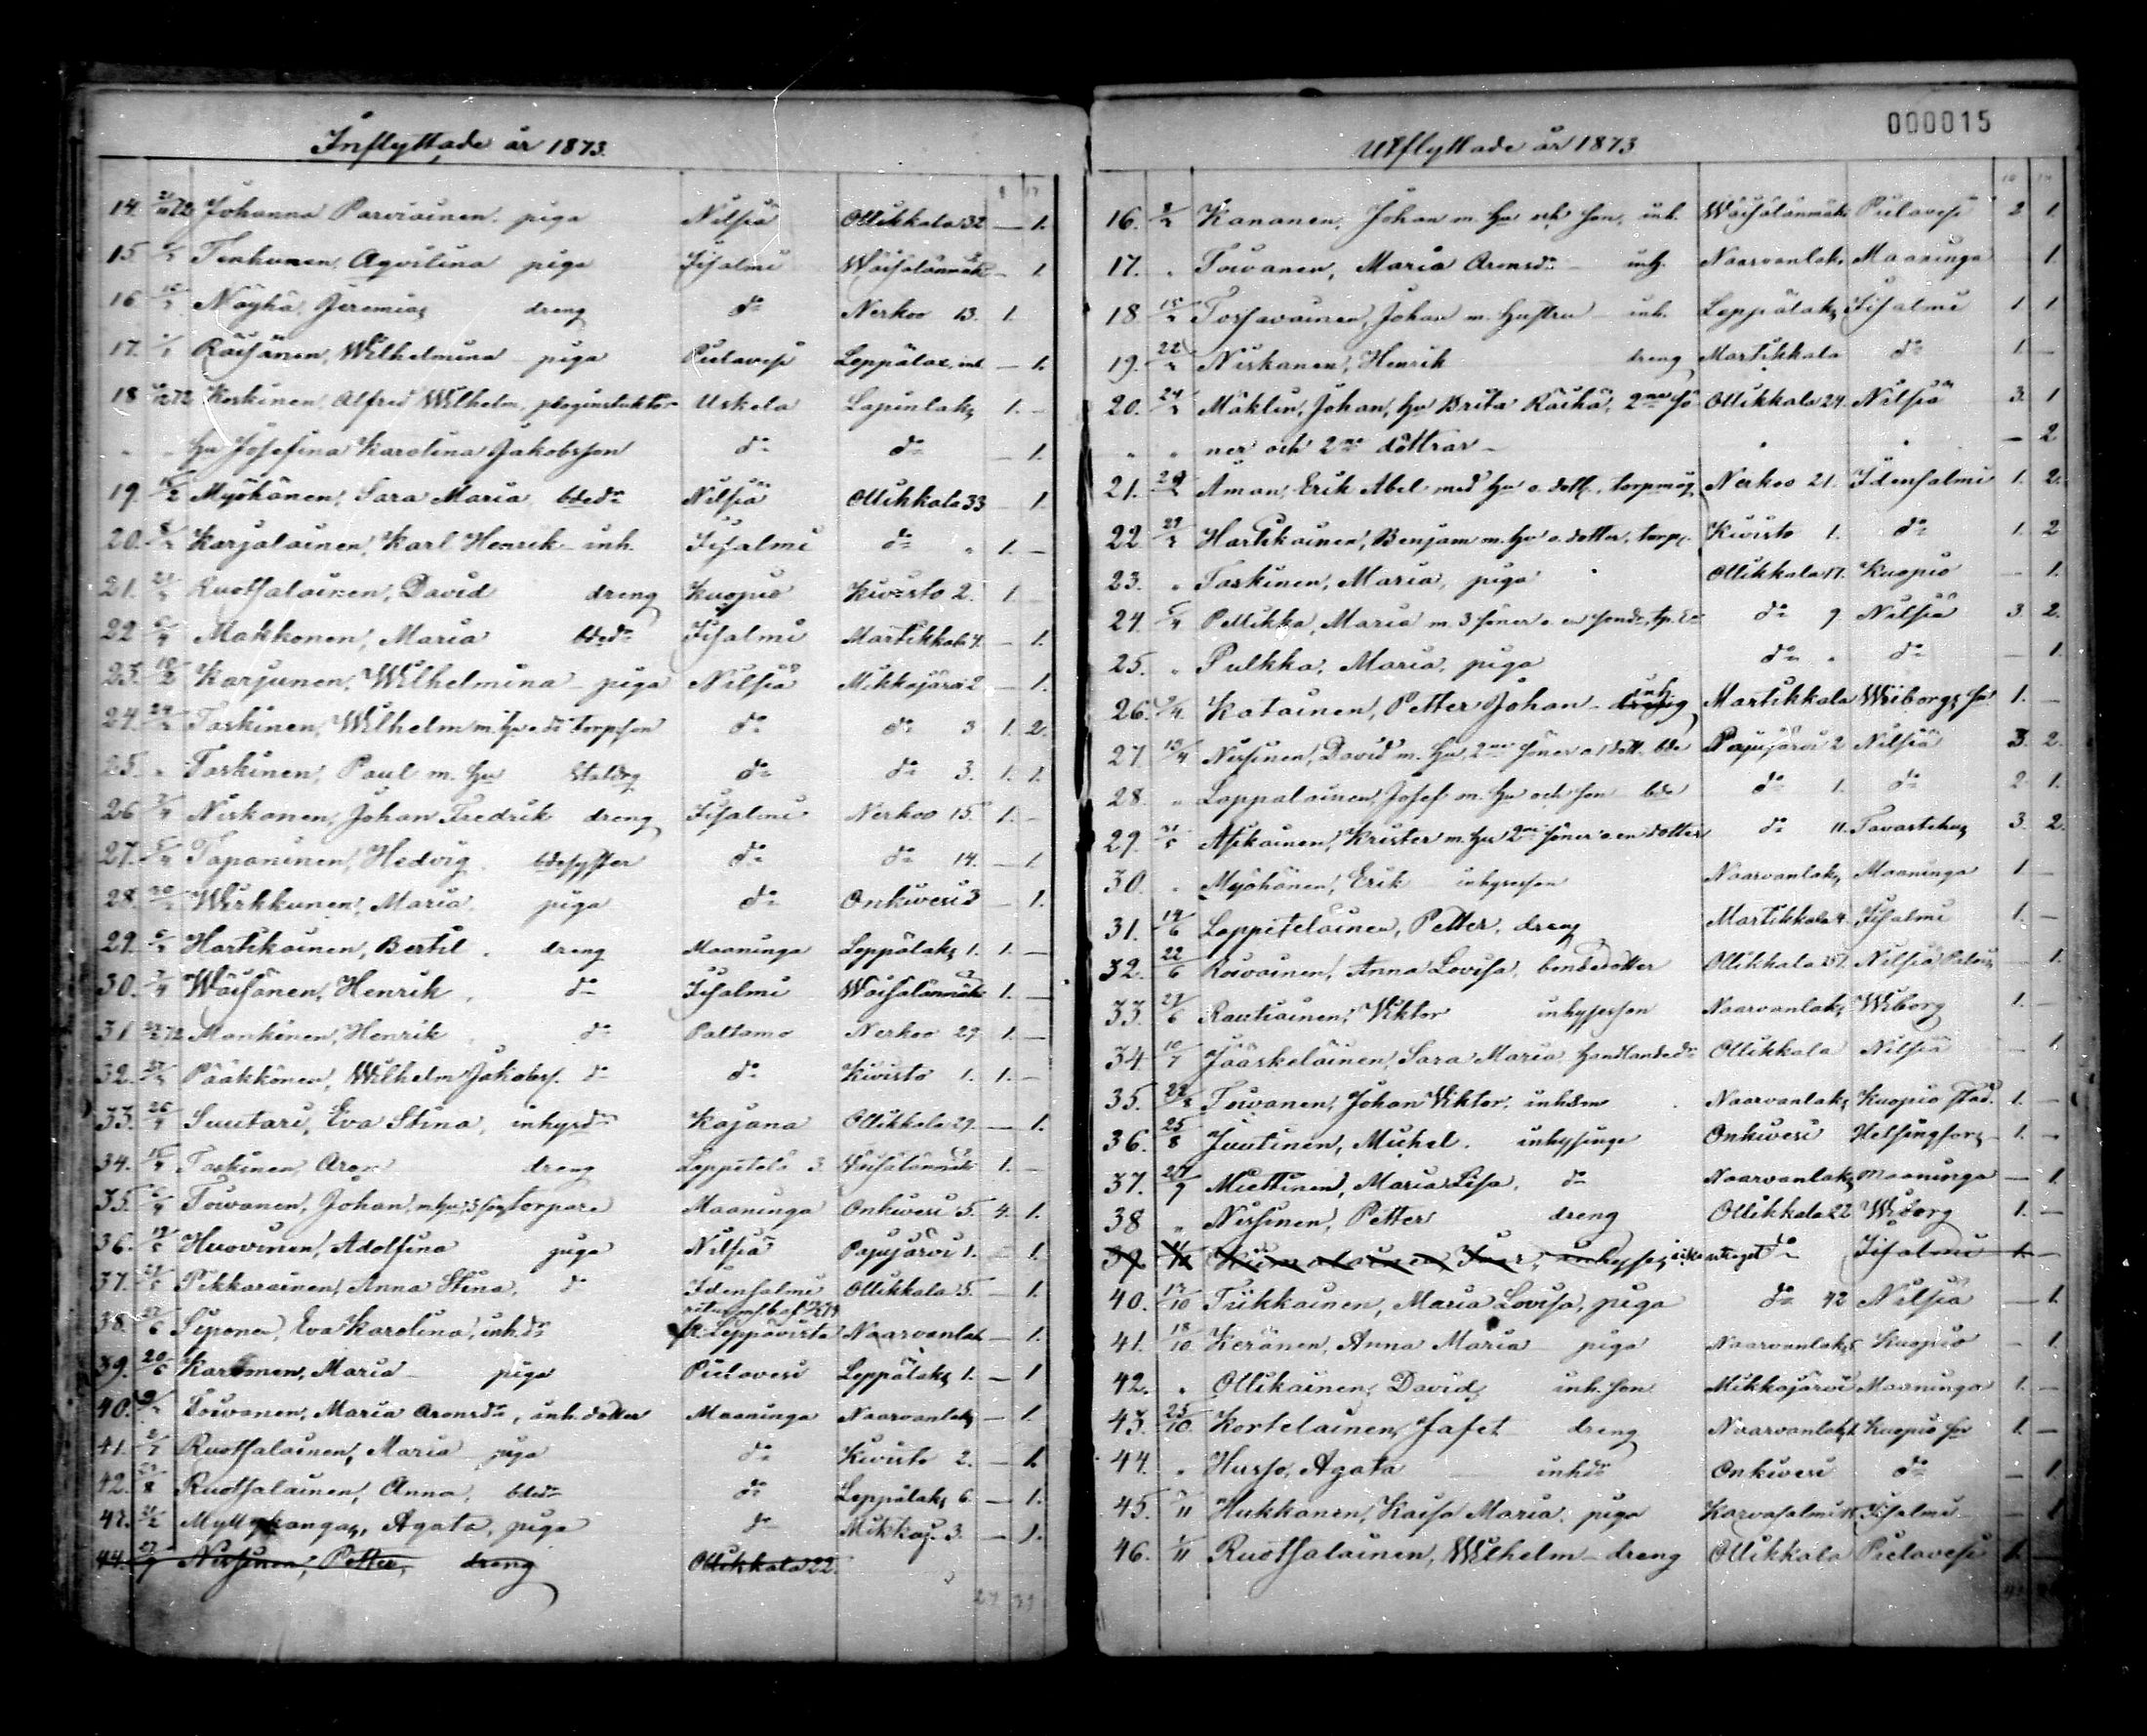 Inflyttade år 1873.
14. 72 Johanna Parviainen, piga Nilsiä Ollikkala 32 — 1.
15. Tenhunen, Agvilina piga Iisalmi Wäisälänmäki — 1.
16 Näyhä, Jeremias dreng do Nerkoo 13. 1.
17. 1/1 Räisänen, Wilhelmina piga Pielavesi Leppälax, inh. — 1.
18 72 Koskinen, Alfred Wilhelm, Uskela Lapinlaks 1. —
" " hu Josefina Karolina Jakobsson do do — 1.
19. Myöhänen, Sara Maria, bdedr Nilsiä Ollikkala 33 1.
20. Karjalainen, Karl Henrik inh. Iisalmi do " 1. —
21. Ruotsalainen, David dreng Kuopio Kivisto 2. 1. —
22 Makkonen, Maria bdedr Iisalmi Martikkala 4. — 1.
23. Karjunen, Wilhelmina piga Nilsiä Mikkajärvi 2 — 1.
24. Taskinen, Wilhelm m. hu o. dr torpson do do 3 1. 2.
25. " Taskinen, Paul m. hu do do 3. 1. 1.
26 Niskanen, Johan Fredrik dreng Iisalmi Nerkoo 15. 1. —
27. Tapaninen, Hedvig bdesyster do do 14. — 1.
28. Wirkkunen, Maria piga do Onkivesi 3 — 1.
29. Hartikainen, Bertil dreng Maaninga Leppälaks 1. 1. —
30. Wäisänen, Henrik do Iisalmi Wäisälänmäki 1. —
31. 72 Mankinen, Henrik do Paltamo Nerkoo 29. 1. —
32. Pääkkönen, Wilhelm Jakobsf. do do Kivisto 1. 1. —
33. Suutari, Eva Stina, inhysdr Kajana Ollikkala 29. — 1.
34. Taskinen, Aron dreng Leppitelä 3. Wäisälänmäki 1. —
35. Toivanen, Johan, m hu 3 son torpare Maaninga Onkivesi 5. 4. 1.
36. Huovinen, Adolfina piga Nilsiä Pajujärvi 1. — 1.
37. Pikkarainen, Anna Stina, do Idensalmi Ollikkala 5. — 1.
38. Siponen, Eva Karolina, inh.dr Leppävirta Naarvanlax — 1.
39. Karhonen, Maria piga Pielavesi Leppälaks 1. — 1
40. Toivanen, Maria Aronsdr, inh. dotter Maaninga Naarvanlaks — 1.
41. Ruotsalainen, Maria piga do Kivisto 2. — 1.
42. Ruotsalainen, Anna, bdedr do Leppälaks 6. — 1.
43. Myllykangas, Agata, piga do Mikkaj. 3. — 1.
44. Nissinen, Petter, dreng Ollikkala 22.
29 39
000015
Utflyttade år 1873
16. Kananen, Johan m. hu och son, inh. Wäisälänmäki Pielavesi 2 1.
17. " Toivanen, Maria Aronsdr inh. Naarvanlaks Maaninga — 1
18. Tossavainen, Johan m. hustru inh. Leppälaks Iisalmi 1. 1
19. Niskanen, Henrik dreng Martikkala do 1. —
20. Mäklin, Johan, hu Brita Räihä, 2ne sö Ollikkala 24. Nilsiä 3. 1
" " ner och 2ne döttrar " " — 2
21. Åman, Erik Abel med hu o. dott., torpmåg Nerkoo 21. Idensalmi 1. 2.
22. Hartikainen, Benjam m. hu o. dotter, torp. Kivisto 1. do 1. 2
23. " Taskinen, Maria, piga Ollikkala 17. Kuopio — 1.
24. Pellikka, Maria m. 3 söner do 9 Nilsiä 3. 2.
25. " Pulkka, Maria, piga do " do — 1.
26. Katainen, Petter Johan inh. dreng Martikkala Wiborgs sn 1. —
27. Nissinen, David m. hu, 2ne söner o 1 dott. bde Pajujärvi 2 Nilsiä 3. 2.
28. " Lappalainen, Josef m. hu och son bde do 1. do 2 1.
29. Asikainen, Krister m. hu 2ne söner o. en dotter do 11. Tavastehus 3. 2.
30. " Myöhänen, Erik inhyseson Naarvanlaks Maaninga 1. —
31. 14/6 Leppiteläinen, Petter, dreng Martikkala 4. Iisalmi 1. —
32. 22/6 Roivainen, Anna Lovisa, bondedotter Ollikkala Nilsiä — 1.
33. 27/6 Rautiainen, Viktor inhyseson Naarvanlaks Wiborg 1. —
34. 10/7 Jääskeläinen, Sara Maria, handlandedr Ollikkala Nilsiä — 1.
35. Toivanen, Johan Viktor, Naarvanlaks Kuopio stad. 1. —
36. 25/8 Juutinen, Mickel, inhysinge Onkivesi Helsingfors 1. —
37. Miettinen, Maria Lisa, do Naarvanlaks Maaninga — 1.
38 " Nissinen, Petter dreng Ollikkala 22 Wiborg 1. —
39. do Iisalmi 1. —
40. 17/10 Tiikkainen, Maria Lovisa, piga do 42 Nilsiä — 1.
41. 18/10 Keränen, Anna Maria piga Naarvanlaks Kuopio — 1.
42. " Ollikainen, David, inh. son Mikkajärvi Maaninga 1. —
43. 25/10 Kortelainen, Jafet dreng Naarvanlaks Kuopio sn 1. —
44. " Husso, Agata inhdr Onkivesi do — 1.
45. Hukkanen, Kaisa Maria, piga Karvasalmi Iisalmi — 1
46. Ruotsalainen, Wilhelm dreng Ollikkala Pielavesi 1. —